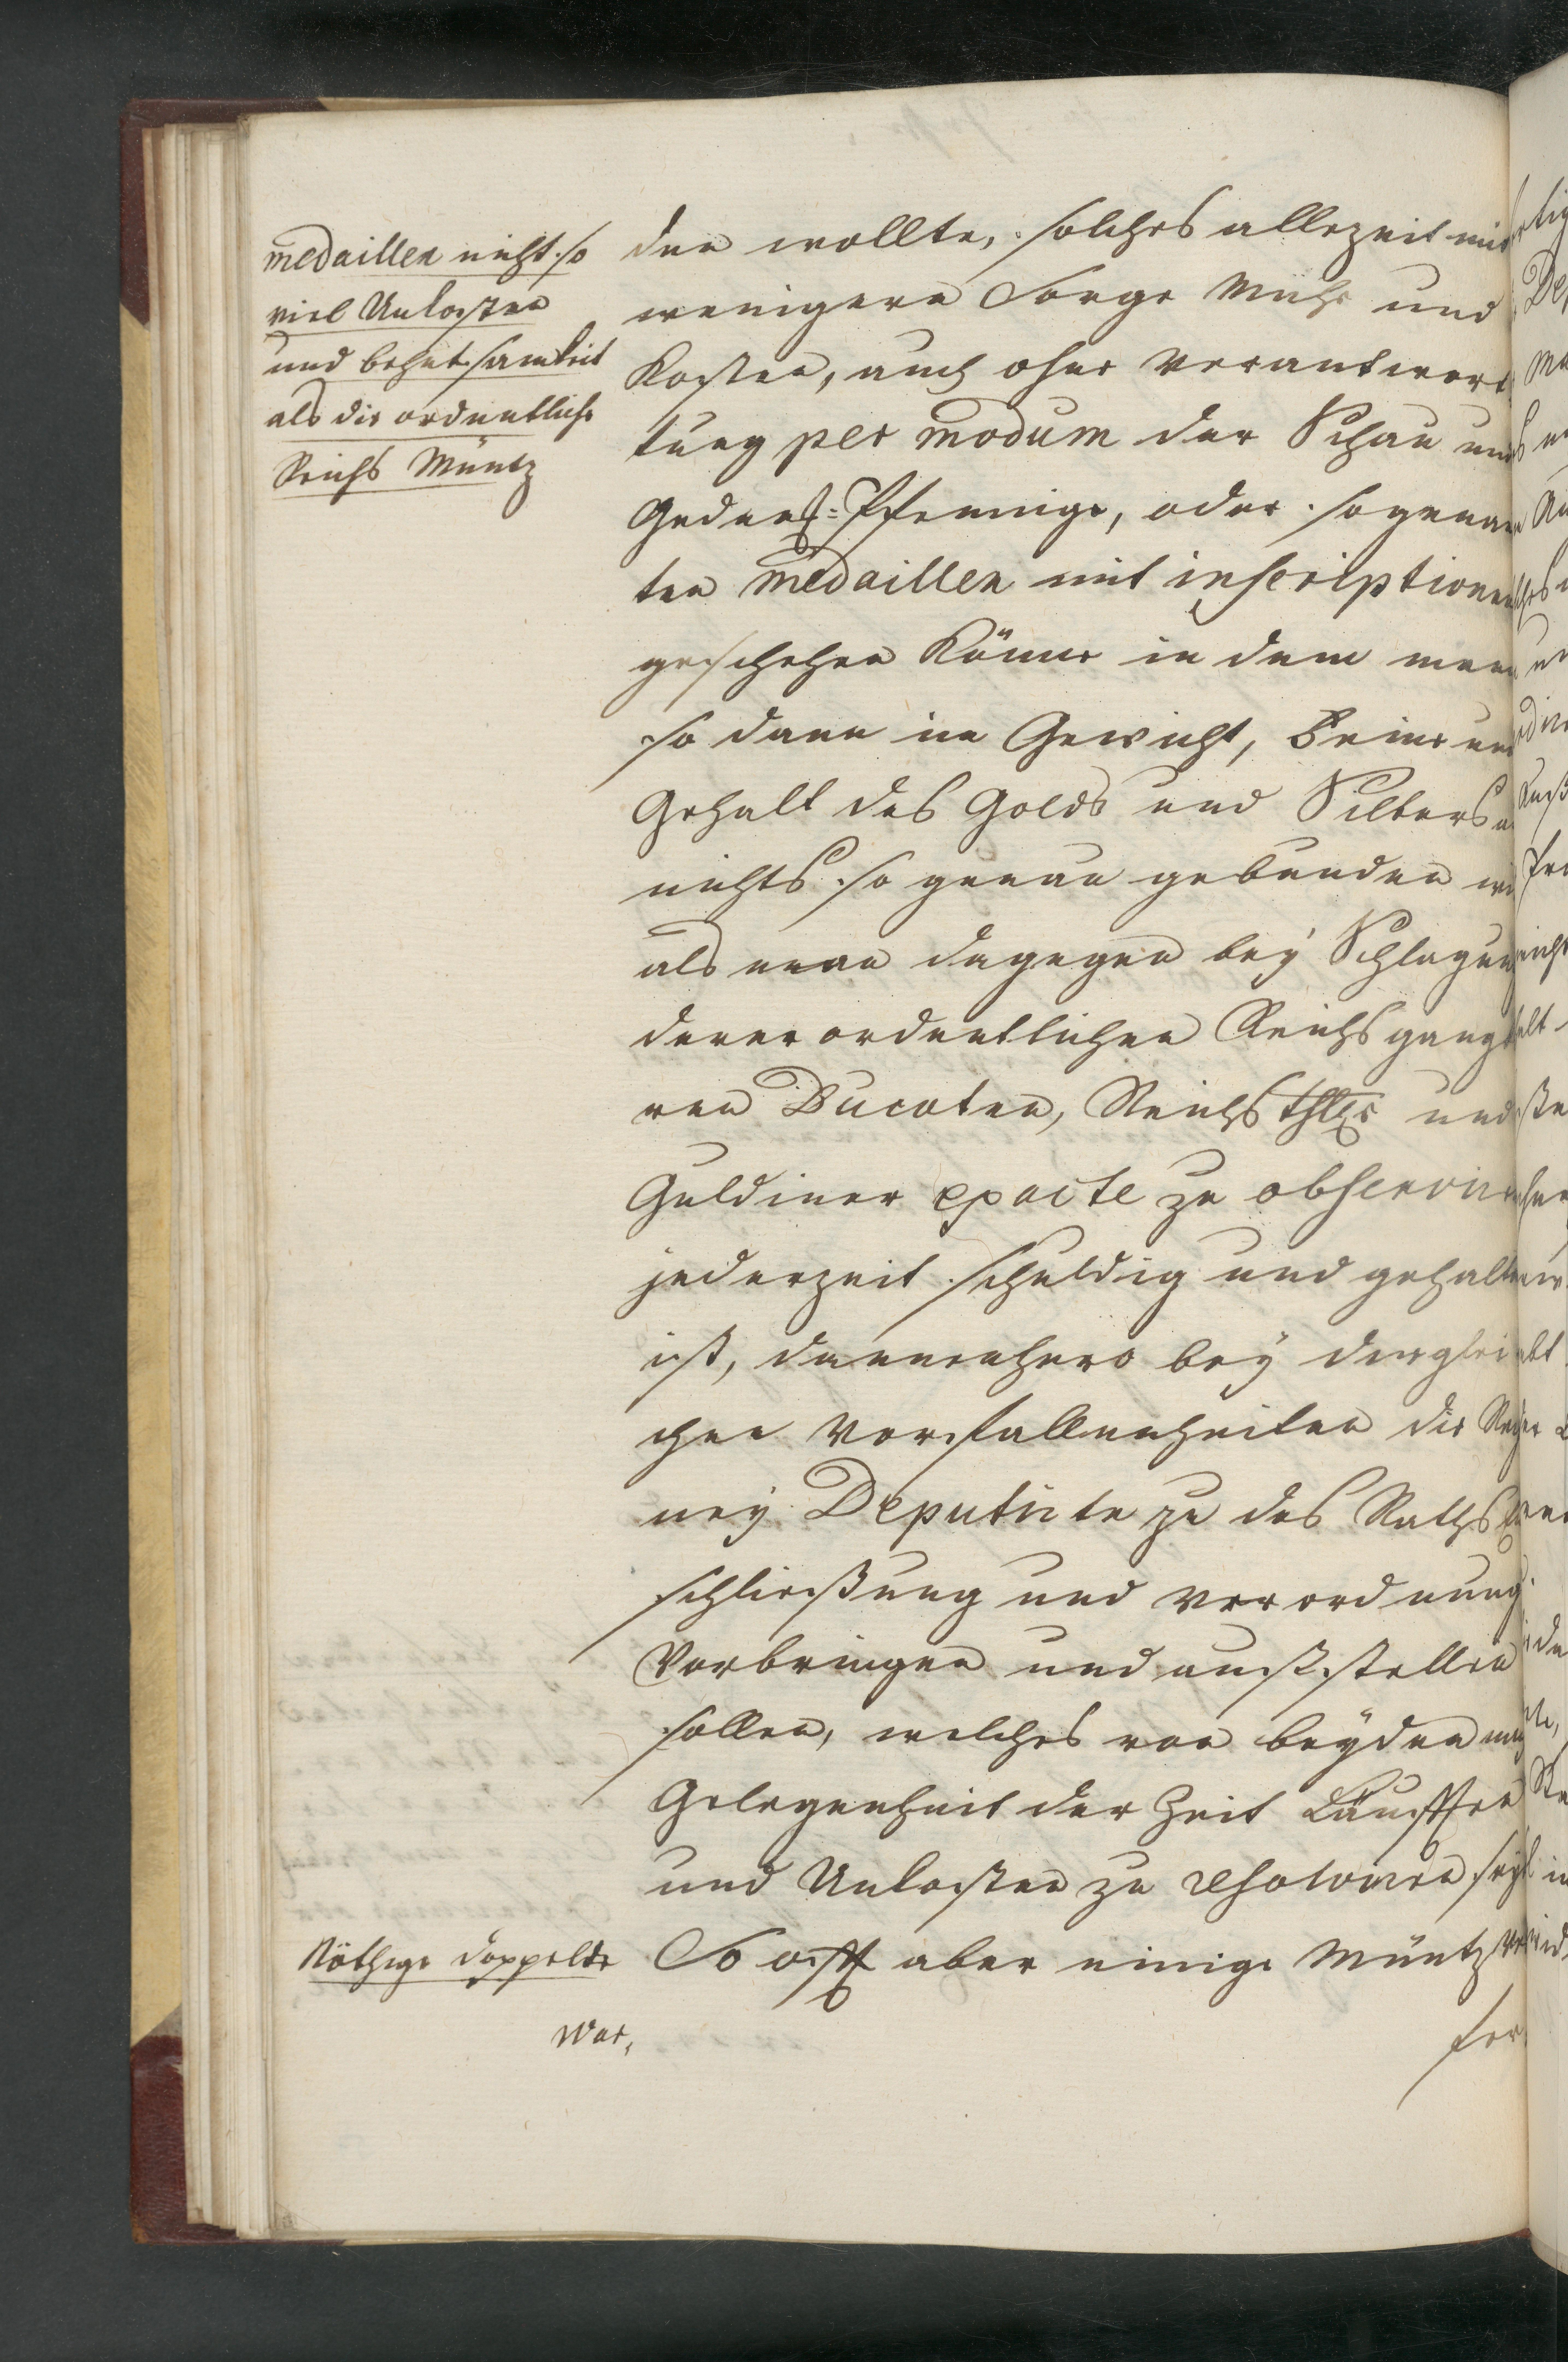 medaillen nicht so
viel Unkosten
und behutsamkeit
als die ordentliche
Reichs Müntz
den wollte, solches allezeit mit
wenigern Sorge Mühe und
Kosten, auch ohne Verantwort
tung per modum der Schau und
Gedenck-Pfennige, oder sogenan
ten medaillen mit inscriptionen
geschehen könne in dem man
so dann in Gewicht, Feine und
Gehalt des Golds und Silbers an
nichts so genau gebunden
als man dagegen bey Schlagung
derer ordentlichen Reichs gangba
ren Ducaten, Reichs Thlr und
Guldiner exacte zu observiren
jederzeit schuldig und gehalten
ist, dannenhero bey derglei
chen Vorfallenheiten die Rech
ney Deputirte zu des Raths Ent
schließung und Verordnung
Vorbringen und ausstellen
sollen, welches von beyden nach
Gelegenheit der Zeit Läufften
und Unkosten zu resolviren seye
Nöthige doppelte
So offt aber einige Müntz
War,
fer